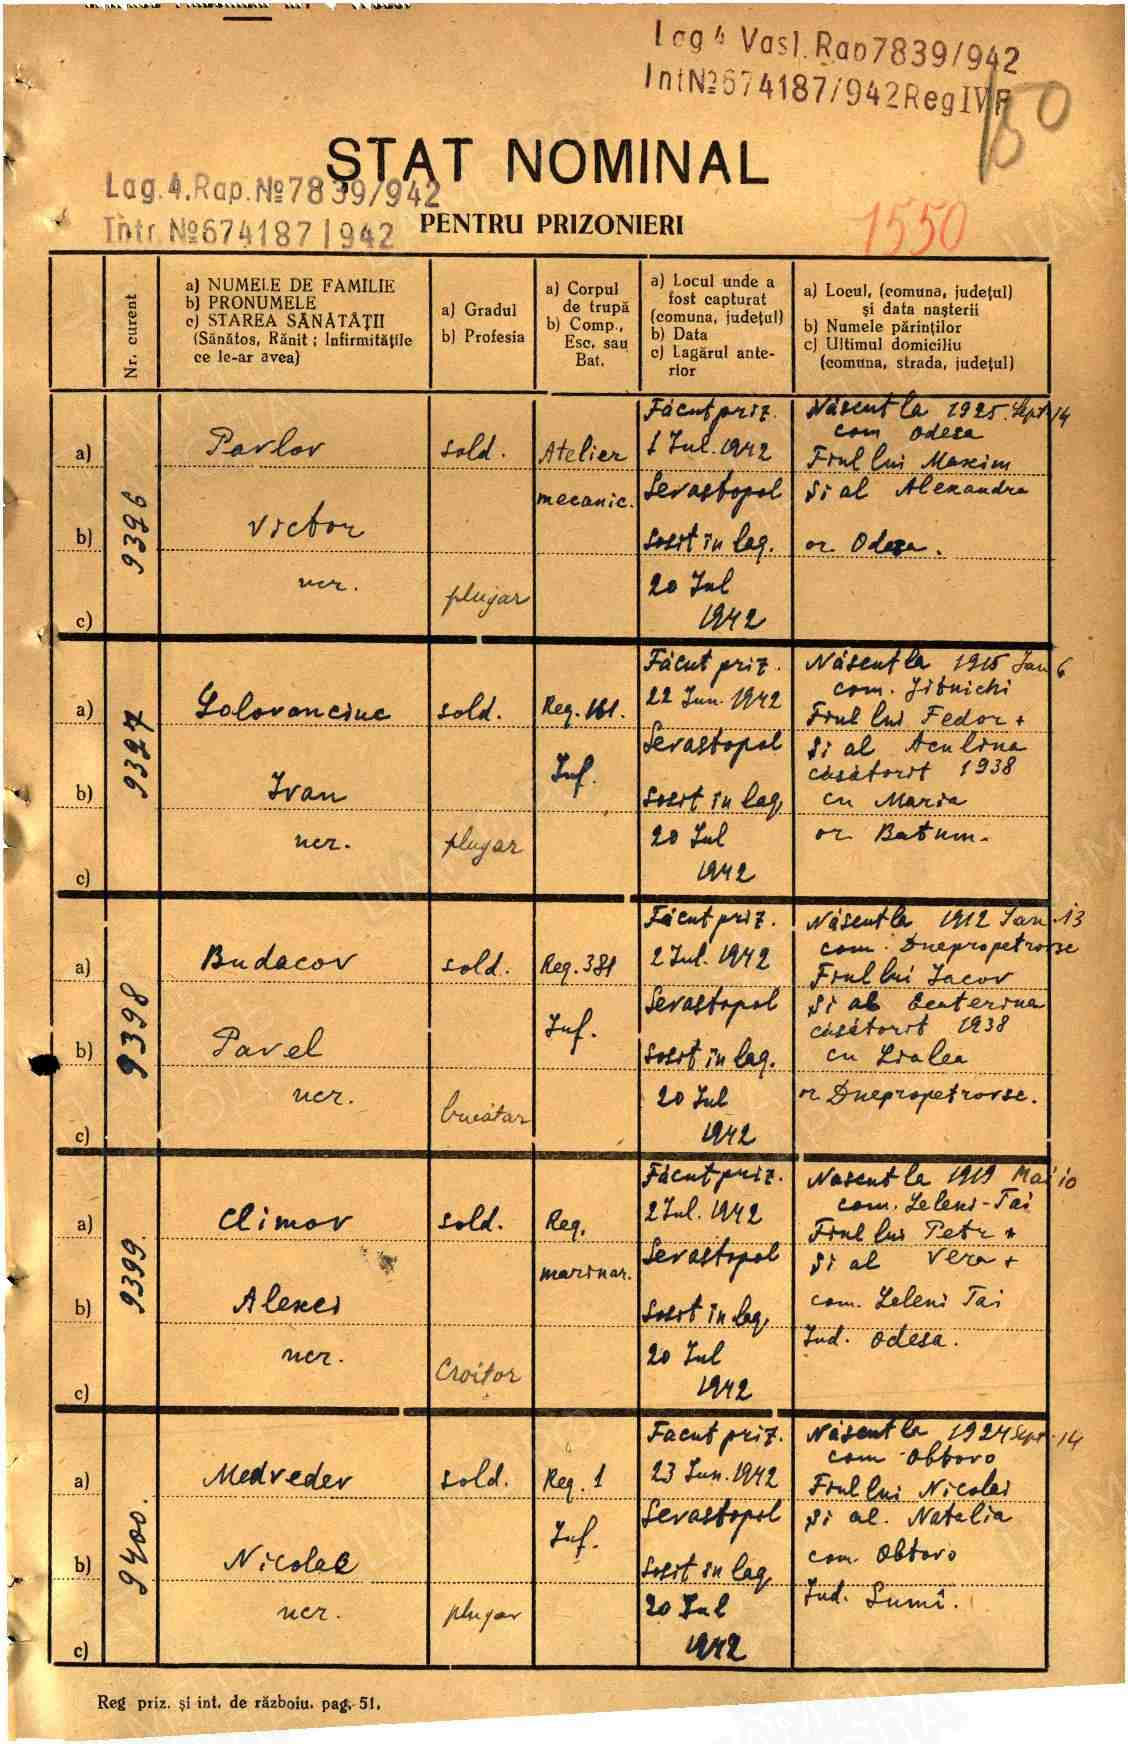 Lag 4 Vasl. Rap 7839/942
Int № 674187/942 Reg IV F
150
ȘTAT NOMINAL
Lag. 4. Rap. № 7839/942
PENTRU PRIZONIERI
Intr. № 674187/942
1550
Nr. curent
a) NUMELE DE FAMILIE
b) PRONUMELE
c) STAREA SĂNĂTĂȚII
(Sănătos, Rănit ; Infirmitățile
ce le-ar avea)
a) Gradul
b) Profesia
a) Corpul
de trupă
b) Comp.,
Esc. sau
Bat.
a) Locul unde a
fost capturat
(comuna, județul)
b) Data
c) Lagărul ante-
rior
a) Locul, (comuna, județul)
și data nașterii
b) Numele părinților
c) Ultimul domiciliu
(comuna, strada, județul)
a)
b)
c)
9396
Pavlov
Victor
ucr.
sold.
plugar
Atelier
mecanic.
Făcut priz.
1 Iul. 1942
Sevastopol
Sosit în lag.
20 Iul
1942
Născut la 1925 Sept 14
com Odesa
Fiul lui Maxim
și al Alexandra
or Odesa.
a)
b)
c)
9397
Golovanciuc
Ivan
ucr.
sold.
plugar
Reg. 161.
Inf.
Făcut priz.
22 Iun. 1942
Sevastopol
Sosit în lag.
20 Iul
1942
Născut la 1915 Ian 6
com. Jitnichi
Fiul lui Fedor +
și al Aculina
căsătorit 1938
cu Maria
or Batum.
a)
b)
c)
9398
Budacov
Pavel
ucr.
sold.
bucătar
Reg. 381
Inf.
Făcut priz.
2 Iul. 1942
Sevastopol
Sosit în lag.
20 Iul
1942
Născut la 1912 Ian. 13
com. Dnepropetrovsc
Fiul lui Iacov
și al Ecaterina
căsătorit 1938
cu Lialea
or Dnepropetrovsc.
a)
b)
c)
9399.
Climov
Alexei
ucr.
sold.
Croitor
Reg.
marinar.
Făcut priz.
2 Iul. 1942
Sevastopol
Sosit în lag.
20 Iul
1942
Născut la 1919 Mai 10
com. Zeleni-Tai
Fiul lui Petr +
și al Vera +
com. Zeleni Tai
Jud. Odesa.
a)
b)
c)
9400.
Medvedev
Nicolae
ucr.
sold.
plugar
Reg. 1
Inf.
Făcut priz.
23 Iun. 1942
Sevastopol
Sosit în lag
20 Iul
1942
Născut la 1924 Sept. 14
com Obtovo
Fiul lui Nicolai
și al. Natalia
com. Obtovo
Jud. Sumî.
Reg priz. și int. de războiu. pag. 51.